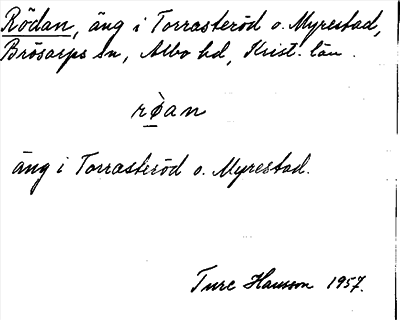 Rödan, äng i Torrasteröd o. Myrestad,
Brösarps sn, Albo hd, Krist. län.
rò̱an
äng i Torrasteröd o. Myrestad.
Ture Hansson 1957.